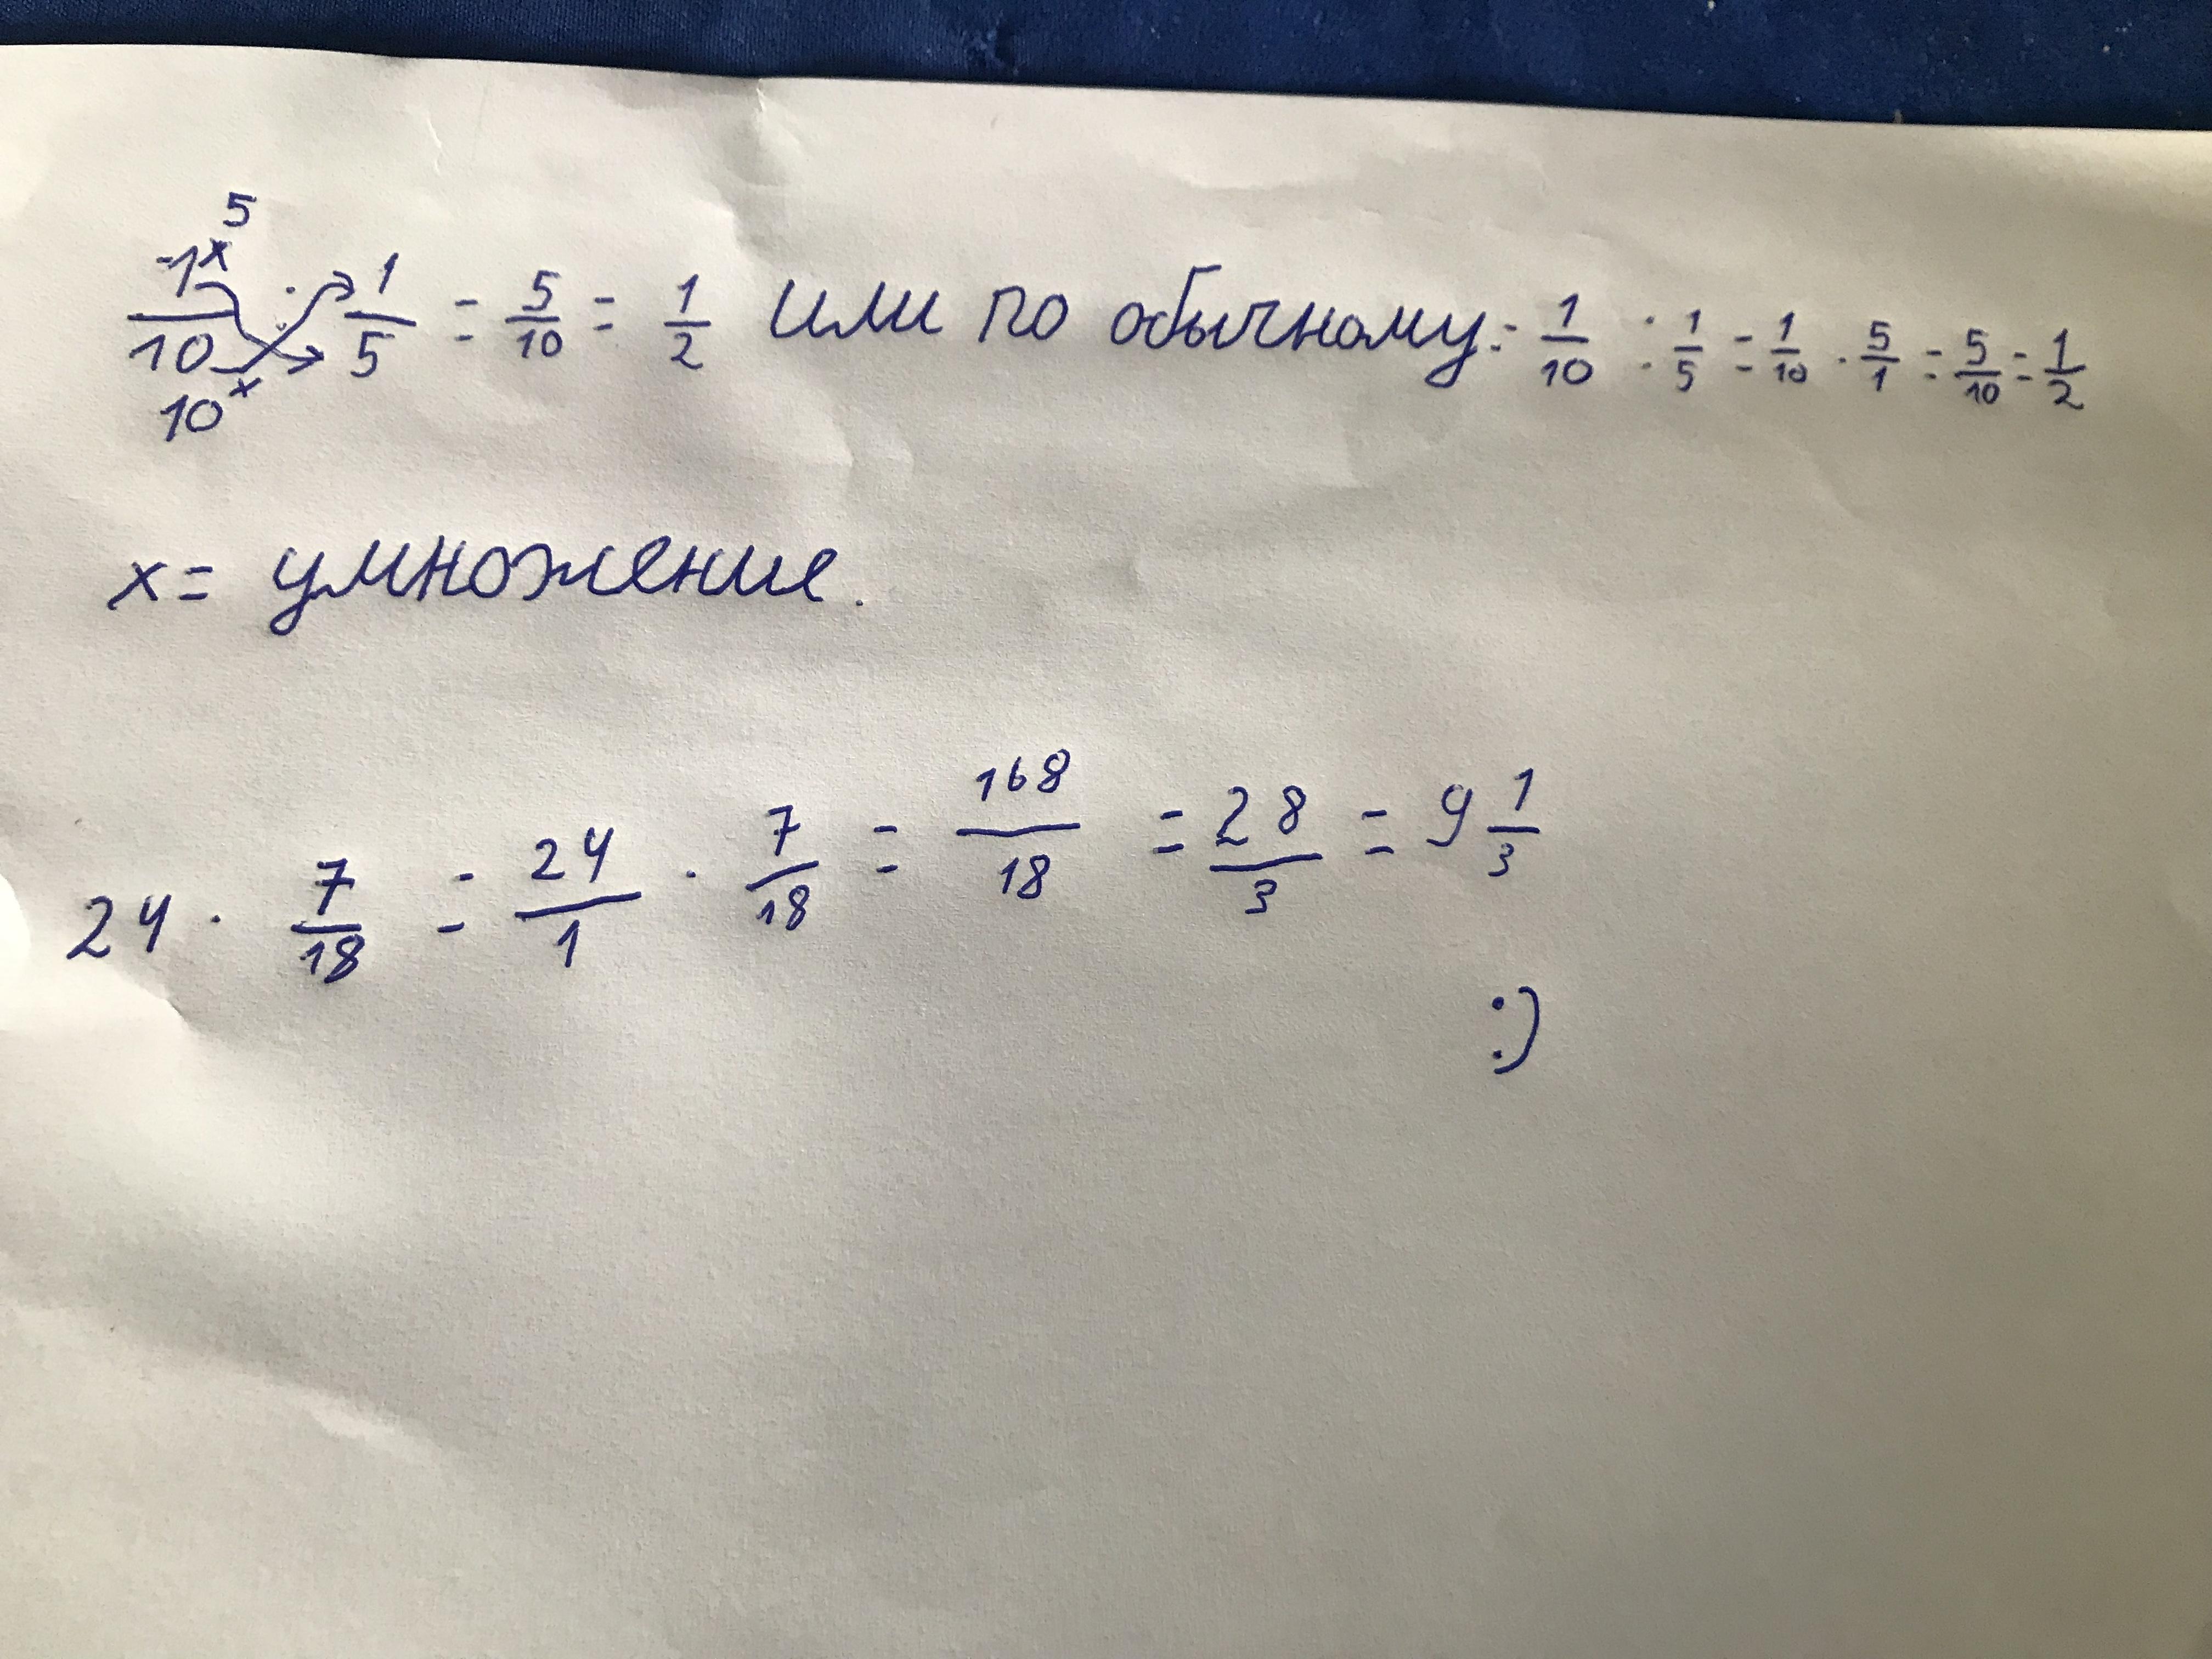 5
1/10 x : 1/5 = 5/10 = 1/2 или по обычному: 1/10 : 1/5 = 1/10 · 5/1 = 5/10 = 1/2
10 x
x = умножение.
24 · 7/18 = 24/1 · 7/18 = 168/18 = 28/3 = 9 1/3
:)